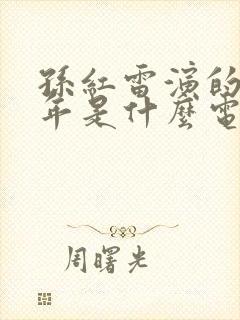 孫紅雷演的
年是什麼電
周曙光